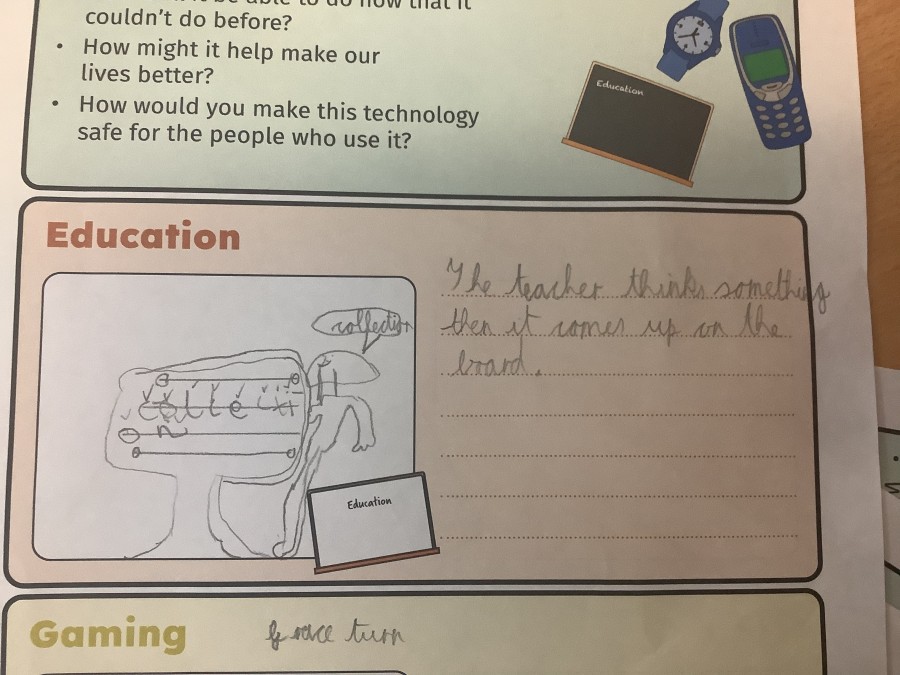 couldn't do before?
• How might it help make our
lives better?
• How would you make this technology
safe for the people who use it?
Education
Education
The teacher thinks something
then it comes up on the
board.
collection
Education
Gaming
turn